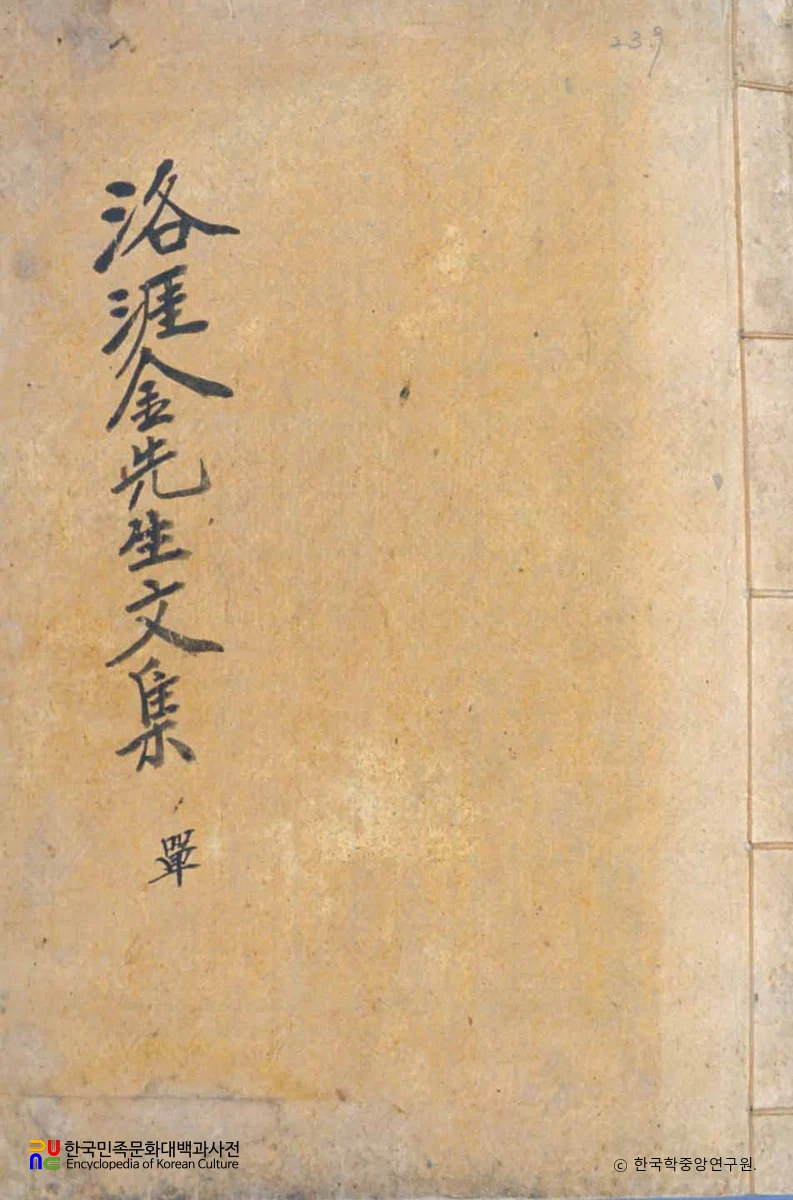 239
洛涯金先生文集
單
한국민족문화대백과사전
Encyclopedia of Korean Culture
ⓒ 한국학중앙연구원.